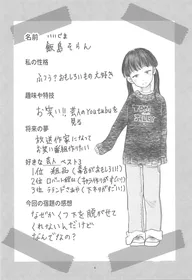 名前
いいじま
飯島 そらん
私の性格
ふつう?おもしろいもの大好き
趣味や特技
お笑い!! 芸人のYoutubeを
見る
将来の夢
放送作家になって
お笑い番組作りたい
好きな芸人 ベスト3
1位 粗品(毒舌がおもしろい!!)
2位 ロバート秋山
3位 ランジャタイ
今回の宿題の感想
なぜかくつ下を脱がせて
くれないんだけど
なんでなの?